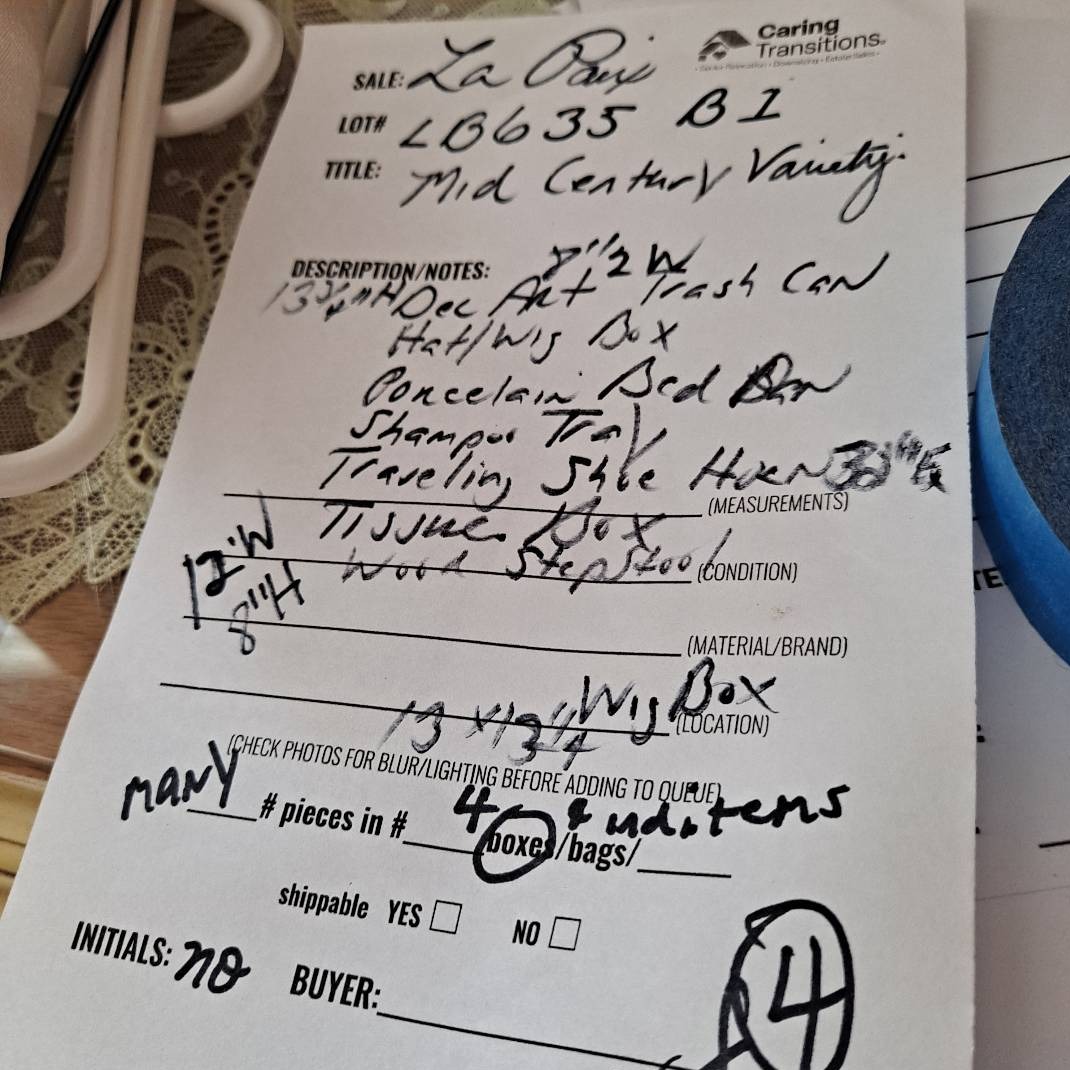 Caring
Transitions.
SALE: La Paix
LOT# LB635 B1
TITLE: Mid Century Variety.
DESCRIPTION/NOTES:
13 3/4" H Dec Art Trash Can
Hat/Wig Box
Porcelain Bed Pan
Shampoo Tray
Traveling Shoe Horn
(MEASUREMENTS)
Tissue Box
Wood Step Stool (CONDITION)
12"W
8"H
(MATERIAL/BRAND)
Wig Box
13 x 13 1/4 (LOCATION)
(CHECK PHOTOS FOR BLUR/LIGHTING BEFORE ADDING TO QUEUE)
MANY # pieces in # 4 boxes/bags/ & ind. items
shippable YES NO
INITIALS: no BUYER:
4